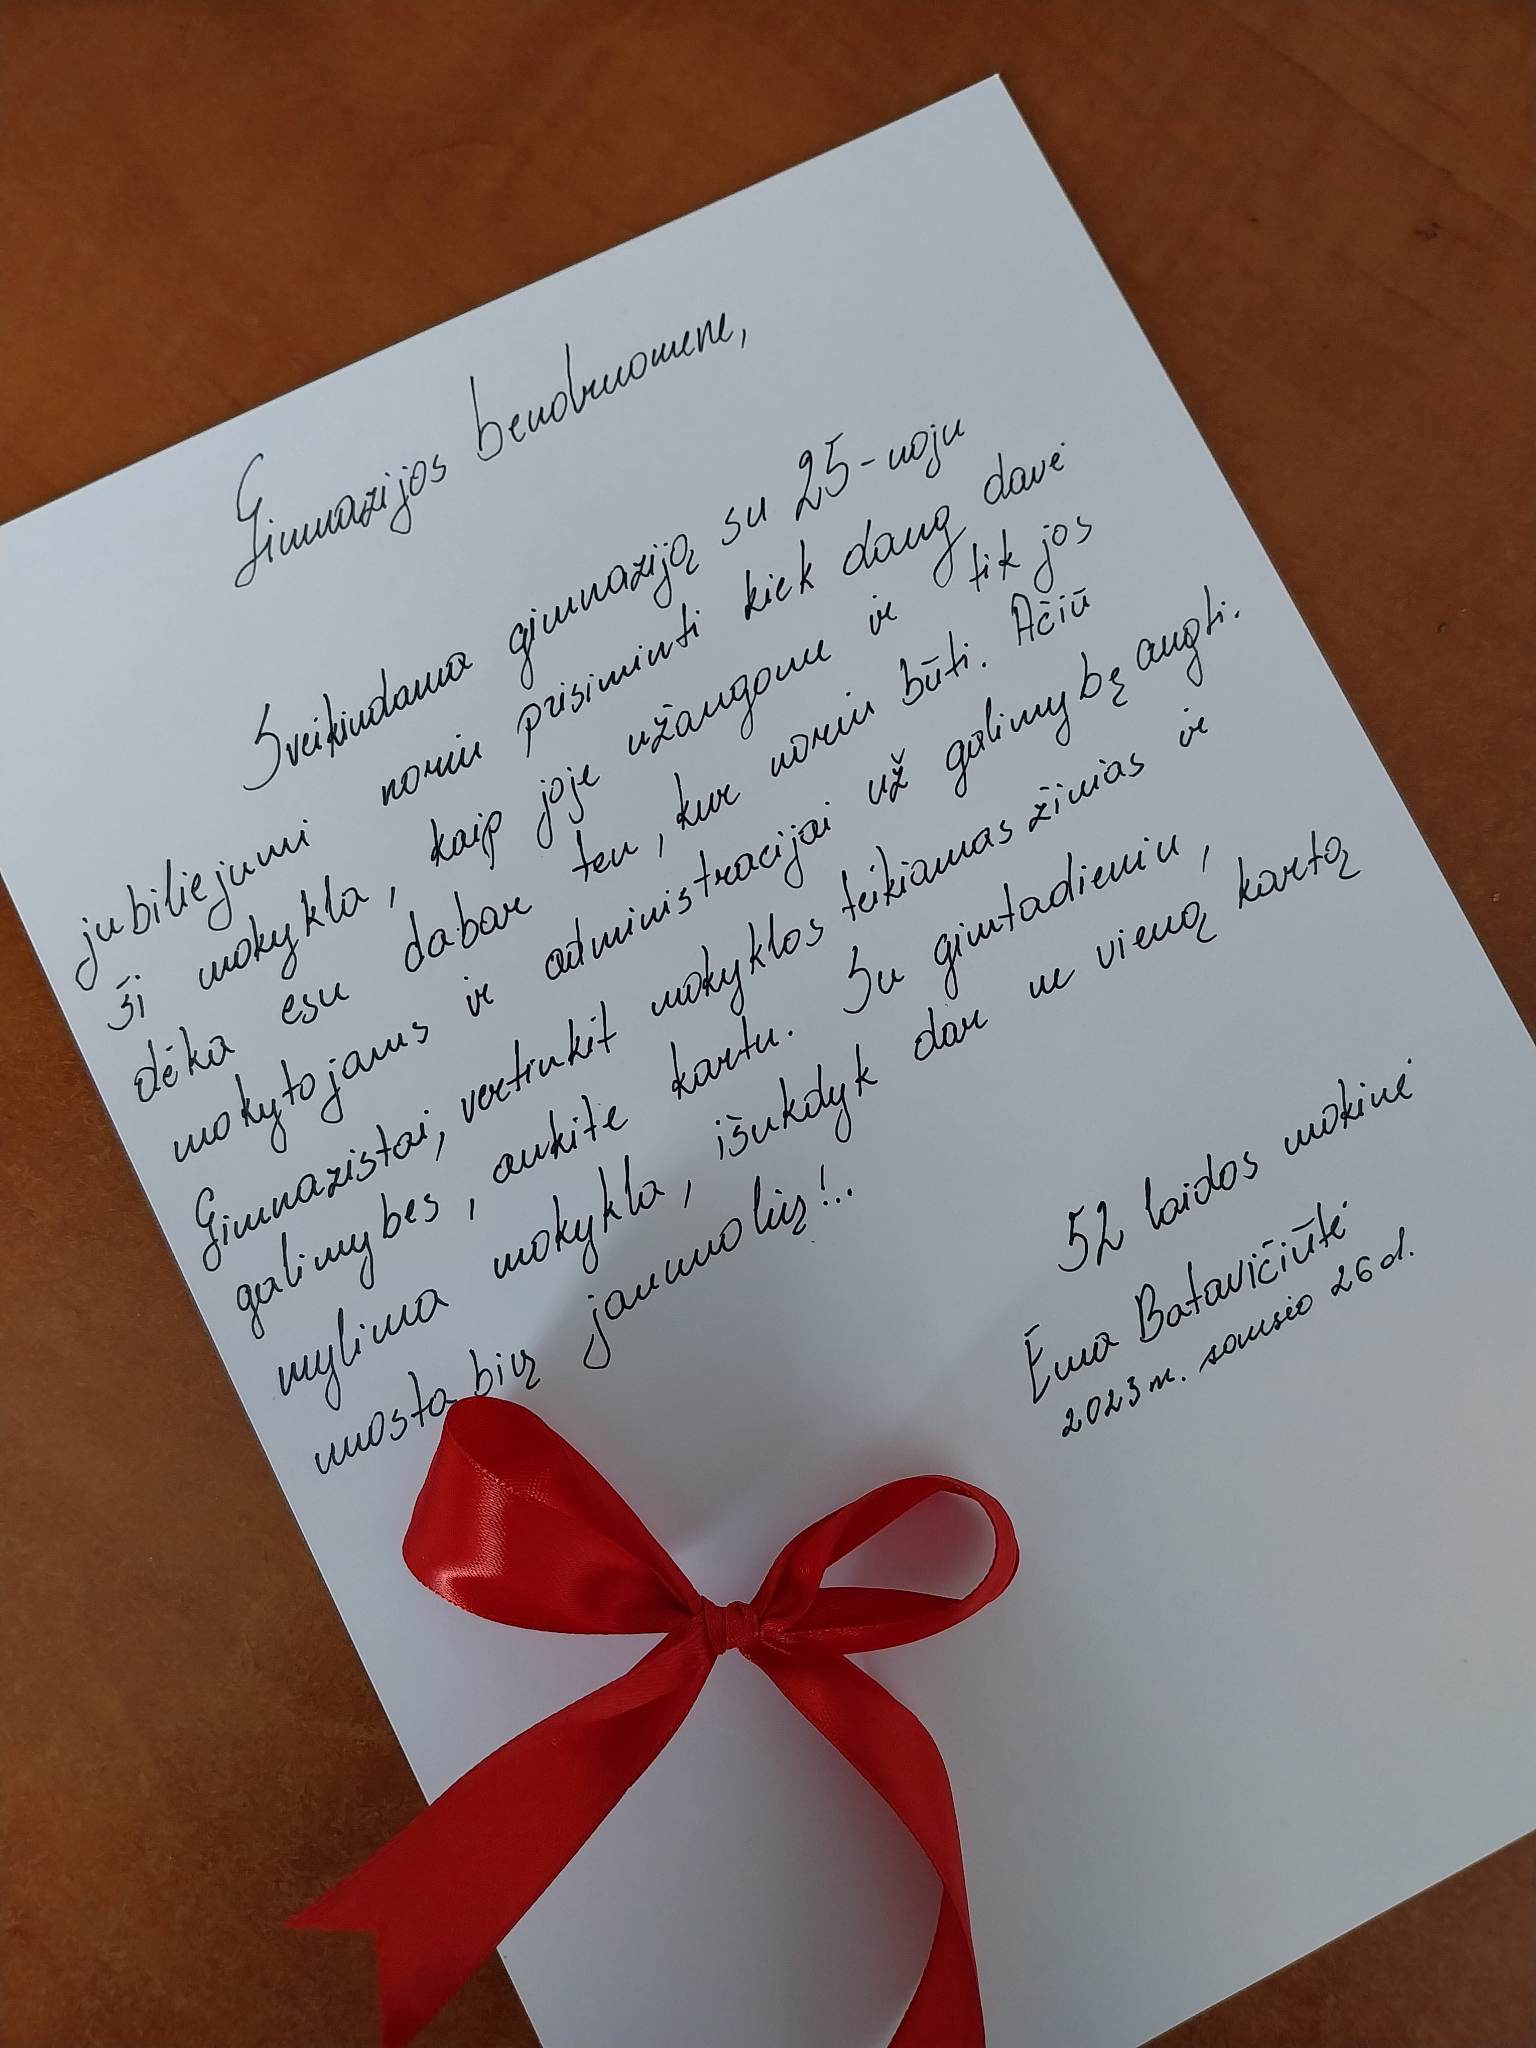 Gimnazijos bendruomene,
Sveikindama gimnaziją su 25-uoju
jubiliejumi noriu prisiminti kiek daug davė
ši mokykla, kaip joje užaugome ir tik jos
dėka esu dabar ten, kur noriu būti. Ačiū
mokytojams ir administracijai už galimybę augti.
Gimnazistai, vertinkit mokyklos teikiamas žinias ir
galimybes, aukite kartu. Su gimtadieniu,
mylima mokykla, išukdyk dar ne vieną kartą
nuostabių jaunuolių!..
52 laidos mokinė
Ema Batavičiūtė
2023 m. sausio 26 d.